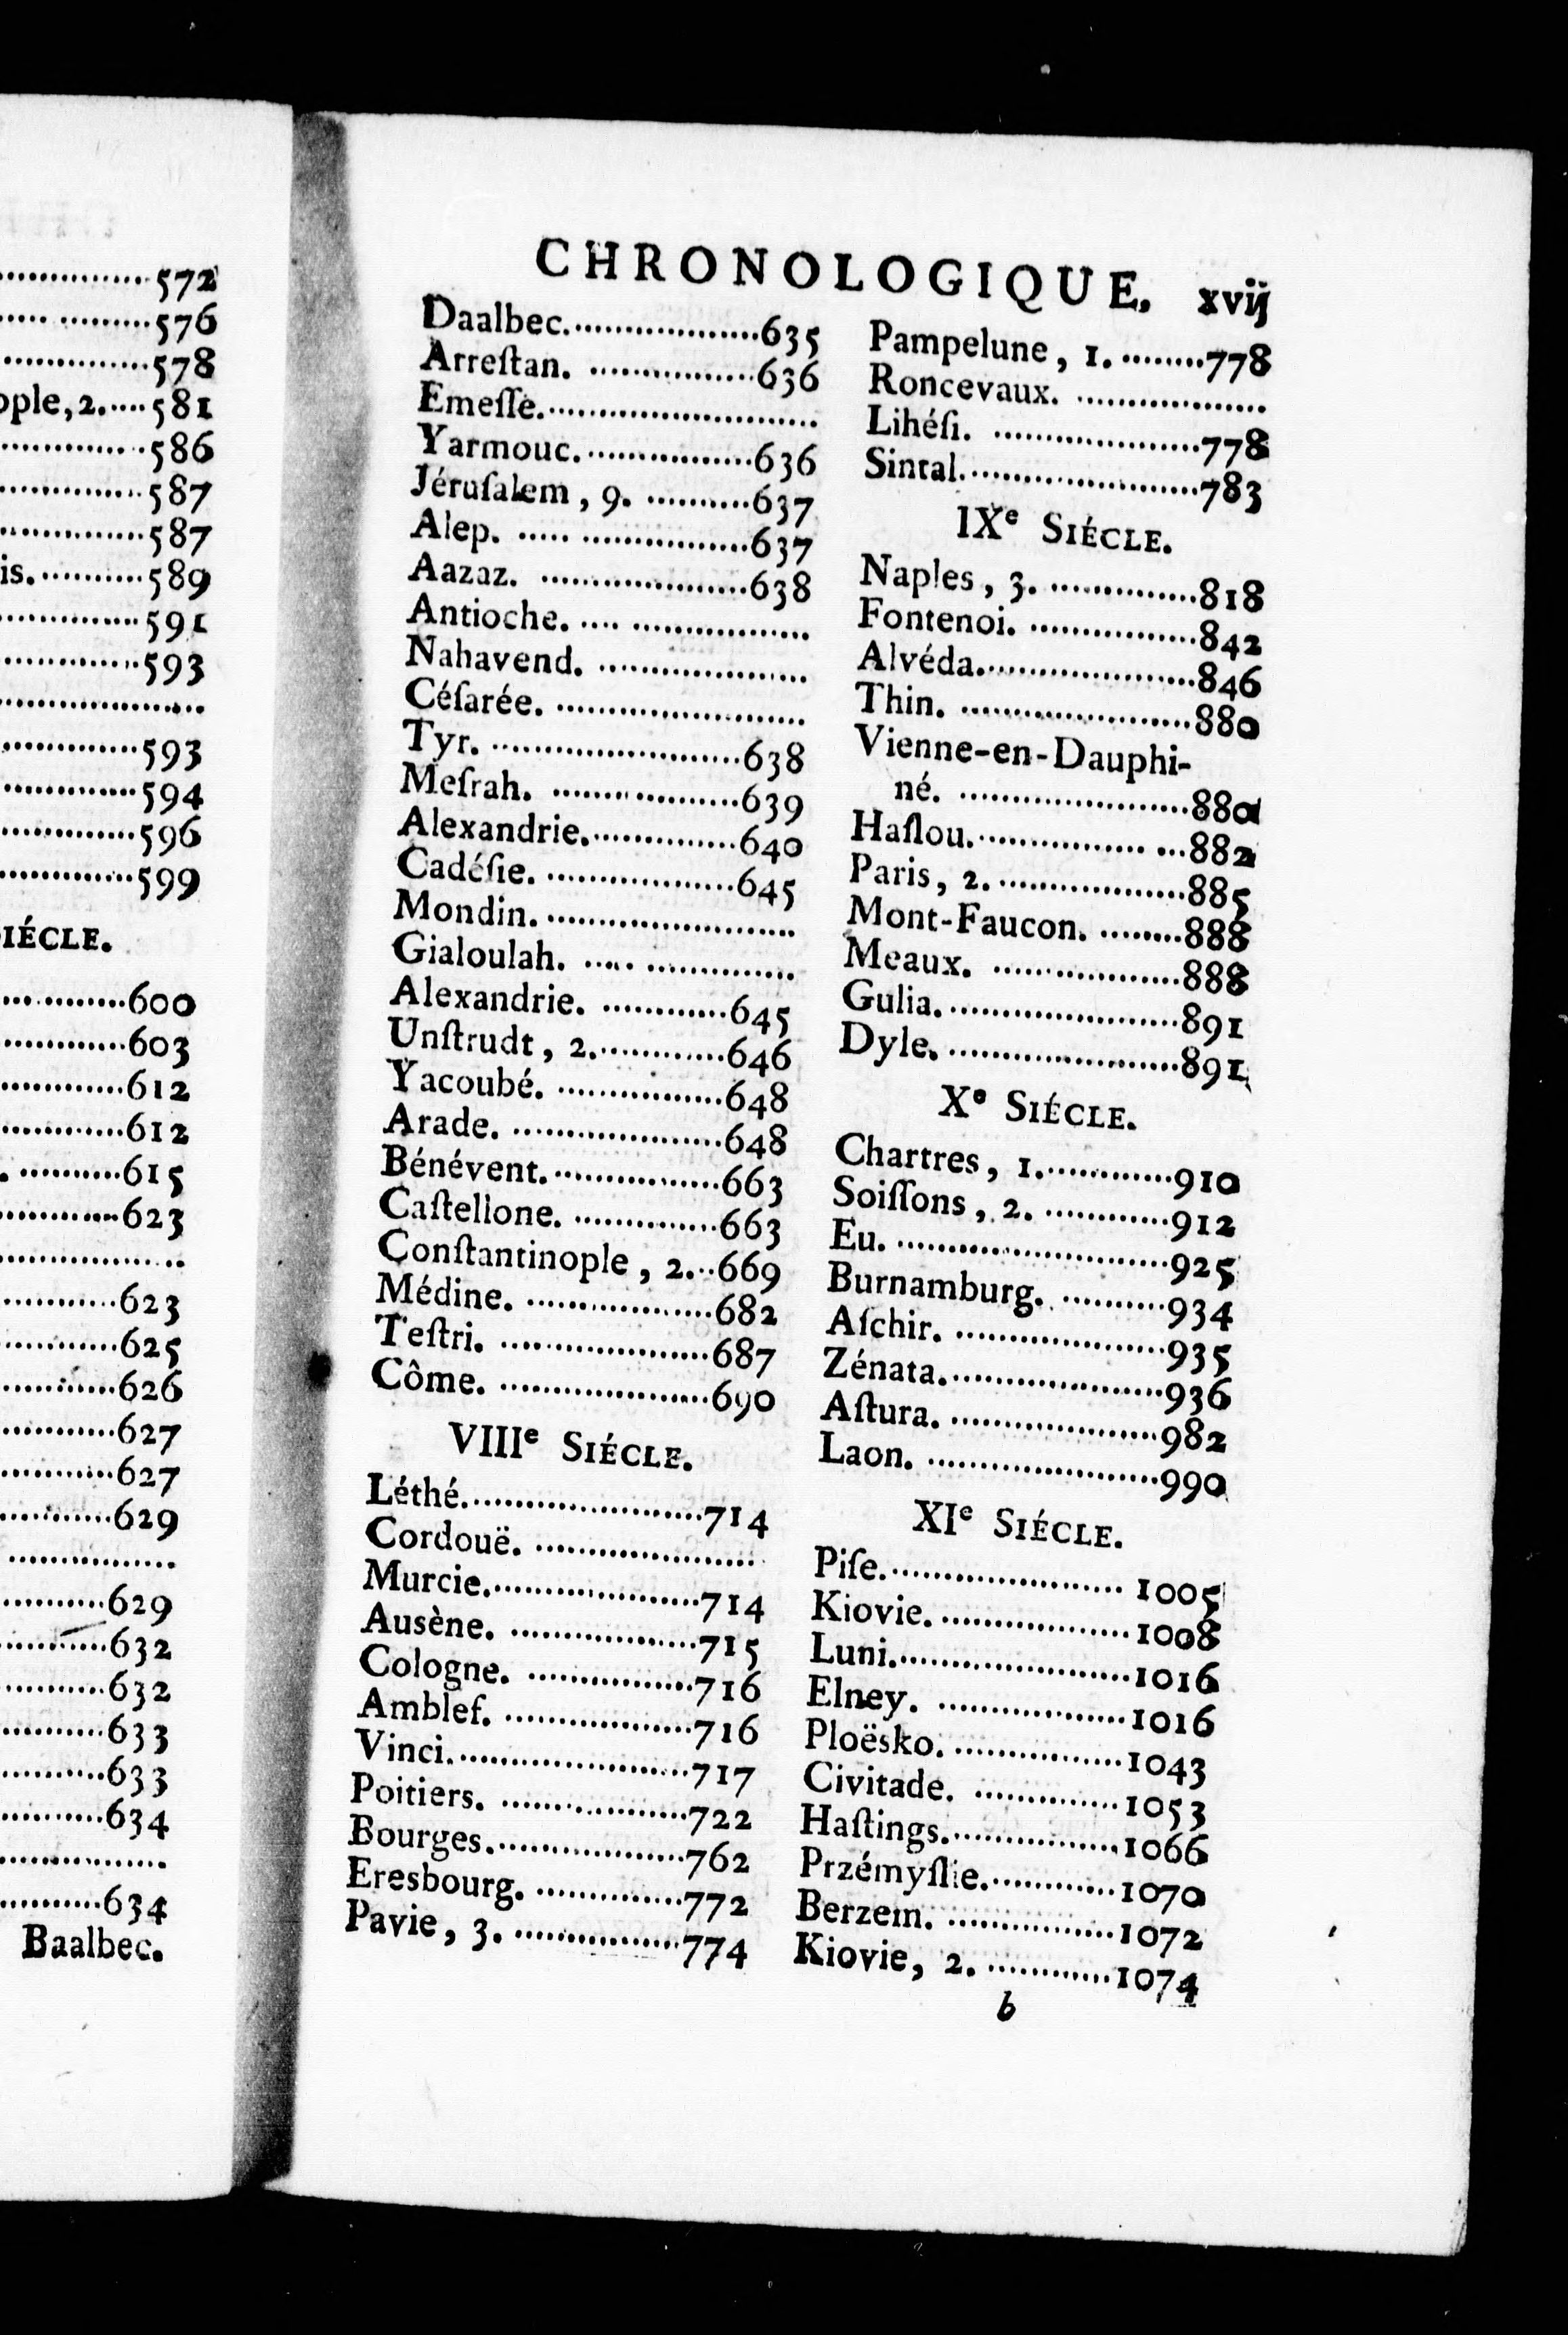 572
576
578
ople, 2. .... 581
586
587
587
is. .......... 589
591
593
..................
593
594
596
599
IÉCLE.
600
603
612
612
615
623
..................
623
625
626
627
627
629
................
629
632
632
633
633
634
................
634
Baalbec.
CHRONOLOGIQUE. xvij
Daalbec. .................. 635
Arreſtan. ................ 636
Emeſſe. ..........................
Yarmouc. ................ 636
Jéruſalem, 9. .......... 637
Alep. ..... ................ 637
Aazaz. .................... 638
Antioche. .... .................
Nahavend. ....................
Céſarée. ........................
Tyr. ........................ 638
Meſrah. .................. 639
Alexandrie. .............. 640
Cadéſie. .................. 645
Mondin. ........................
Gialoulah. ..... ..............
Alexandrie. ............ 645
Unſtrudt, 2. ............ 646
Yacoubé. ................ 648
Arade. .................... 648
Bénévent. ................ 663
Caſtellone. .............. 663
Conſtantinople, 2. .. 669
Médine. .................. 682
Teſtri. .................... 687
Côme. .................... 690
VIIIe SIÉCLE.
Léthé. ...................... 714
Cordouë. .....................
Murcie. .................... 714
Ausène. .................. 715
Cologne. ................ 716
Amblef. .................. 716
Vinci. ...................... 717
Poitiers. .................. 722
Bourges. .................. 762
Eresbourg. .............. 772
Pavie, 3. ................ 774
Pampelune, 1. ........ 778
Roncevaux. ..................
Lihéſi. .................... 778
Sintal. ...................... 783
IXe SIÉCLE.
Naples, 3. .............. 818
Fontenoi. ................ 842
Alvéda. .................... 846
Thin. ...................... 880
Vienne-en-Dauphi-
né. ...................... 880
Haſlou. ................ ... 882
Paris, 2. .................. 885
Mont-Faucon. ........ 888
Meaux. .................. 888
Gulia. ...................... 891
Dyle. ...................... 891
Xe SIÉCLE.
Chartres, 1. ............ 910
Soiſſons, 2. ............ 912
Eu. .......................... 925
Burnamburg. .......... 934
Aſchir. .................... 935
Zénata. .................... 936
Aſtura. .................... 982
Laon. ...................... 990
XIe SIÉCLE.
Piſe. ...................... 1005
Kiovie. .................. 1008
Luni. ...................... 1016
Elney. .................. 1016
Ploësko. ................ 1043
Civitade. .............. 1053
Haſtings. ................ 1066
Przémyſlie. ............ 1070
Berzem. ................ 1072
Kiovie, 2. ............ 1074
b